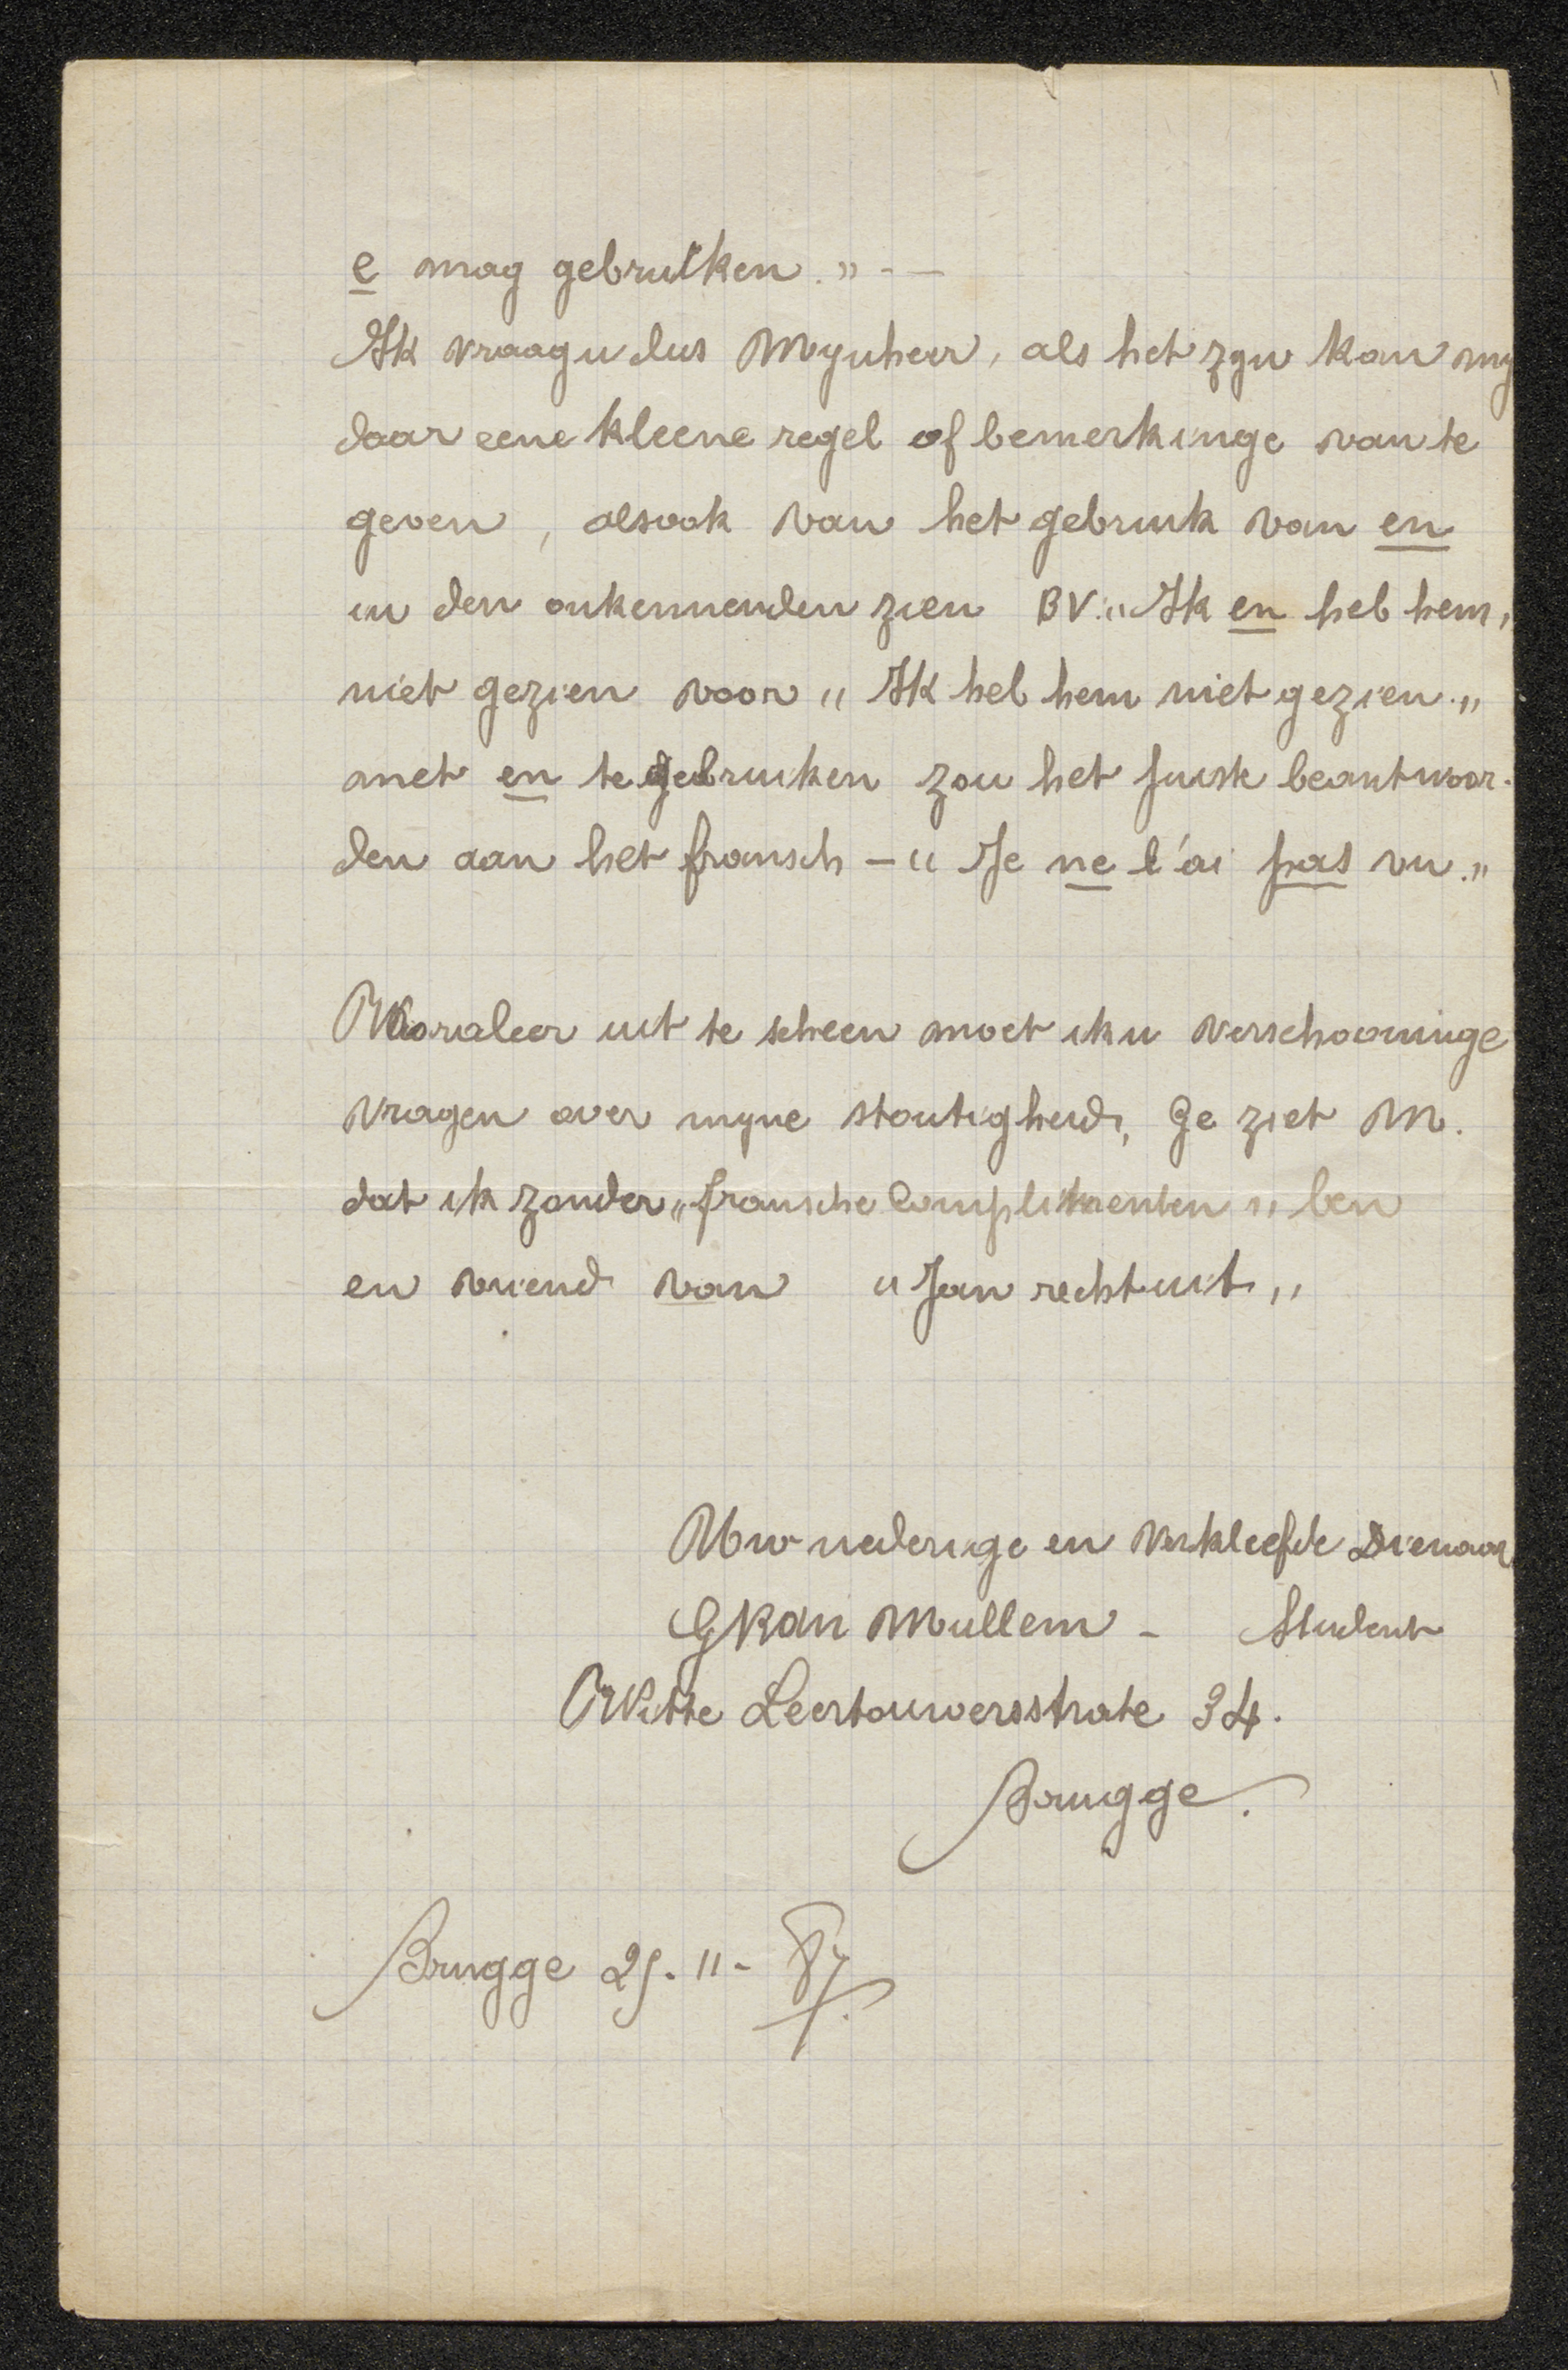 e mag gebruiken." - —
Ik vraag u dus Mynheer, als het zyn kan my
daar eene kleene regel of bemerkinge van te
geven, alsook van het gebruik van en
in den onkennenden zien BV. "Ik en heb hem,
niet gezien voor "Ik heb hem niet gezien."
met en te gebruiken zou het juiste beantwoor-
den aan het fransch — "Je ne l'ai pas vu."
Vooraleer uit te scheen moet ik u verschooninge
vragen over myne stoutigheid, Ge ziet M.
dat ik zonder "fransche complimenten" ben
en vriend van "Jan rechtuit,"
Uw nederige en verkleefde Dienaar
G Van Mullem - Student
Witte Leertouwersstrate 34.
Brugge.
Brugge 25. 11 - 87.